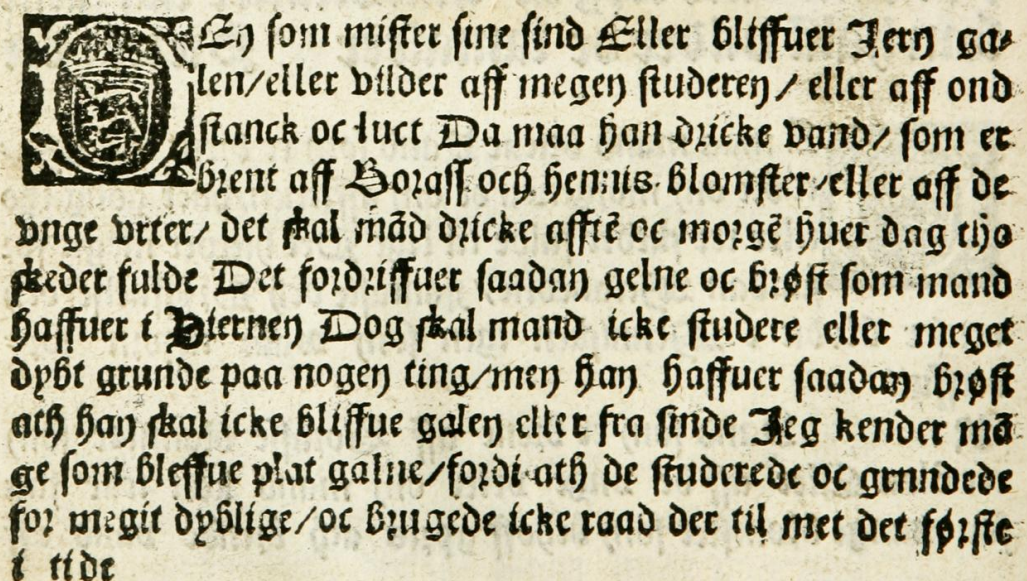 DEn som mister sine sind Eller bliffuer Jern ga⸗
len/eller vilder aff megen studeren / eller aff ond
stanck oc luct Da maa han dricke vand/ som er
brent aff Borass och hennis blomster/eller aff de
vnge vrter/ det skal mād dricke afftē oc morgē huer dag tijo
skeder fulde Det fordriffuer saadan gelne oc brøst som mand
haffuer i Hiernen Dog skal mand icke studere eller meget
dybt grunde paa nogen ting/men han haffuer saadan brøst
ath han skal icke bliffue galen eller fra sinde Jeg kender mā
ge som bleffue plat galne/fordi ath de studerede oc grundede
for megit dyblige/oc brugede icke raad der til met det første
i tide